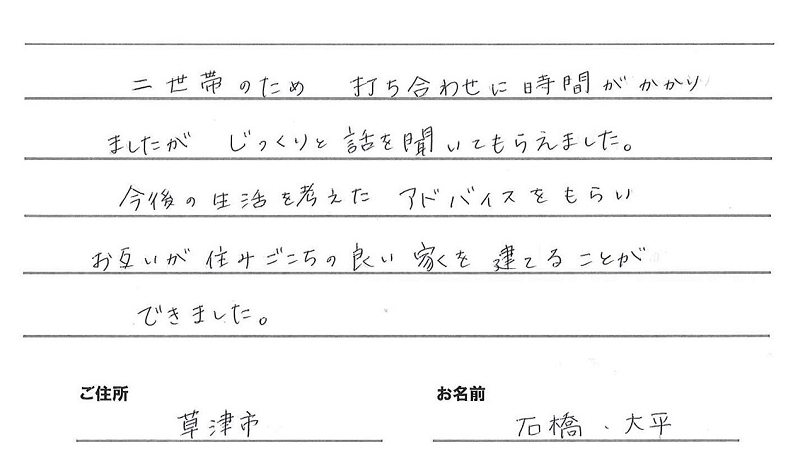 二世帯のため 打ち合わせに時間がかかり
ましたが じっくりと話を聞いてもらえました。
今後の生活を考えた アドバイスをもらい
お互いが住みごこちの良い家を建てることが
できました。
ご住所 お名前
草津市 石橋、大平